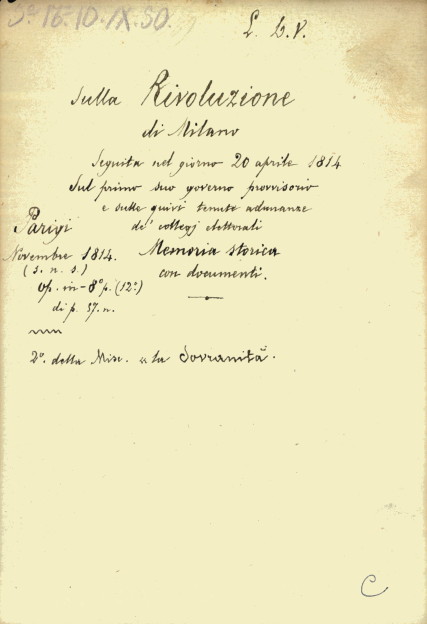 5ª 16. 10. IX. 50.
L. L. V.
Sulla Rivoluzione
di Milano
Seguita nel giorno 20 aprile 1814
Sul primo suo governo provvisorio
e sulle quivi tenute adunanze
de' collegj elettorali
Memoria storica
con documenti.
Parigi
Novembre 1814.
(s. n. s.)
op. in-8º p. (12º)
di p. 57. n.
2º. della Misc. "la Sovranità".
C